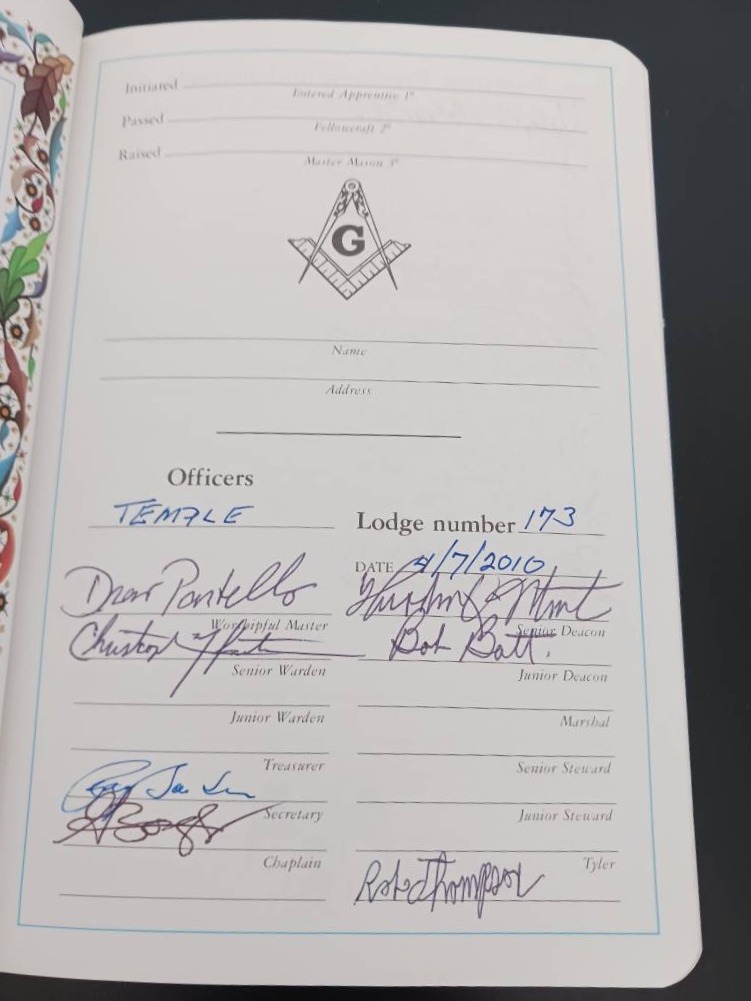 Initiated
Entered Apprentice 1°
Passed
Fellowcraft 2°
Raised
Master Mason 3°
G
Name
Address
Officers
TEMPLE
Lodge number 173
DATE 4/7/2010
Worshipful Master
Senior Deacon
Bob Batt.
Senior Warden
Junior Deacon
Junior Warden
Marshal
Treasurer
Senior Steward
Secretary
Junior Steward
Chaplain
Tyler
Thompson